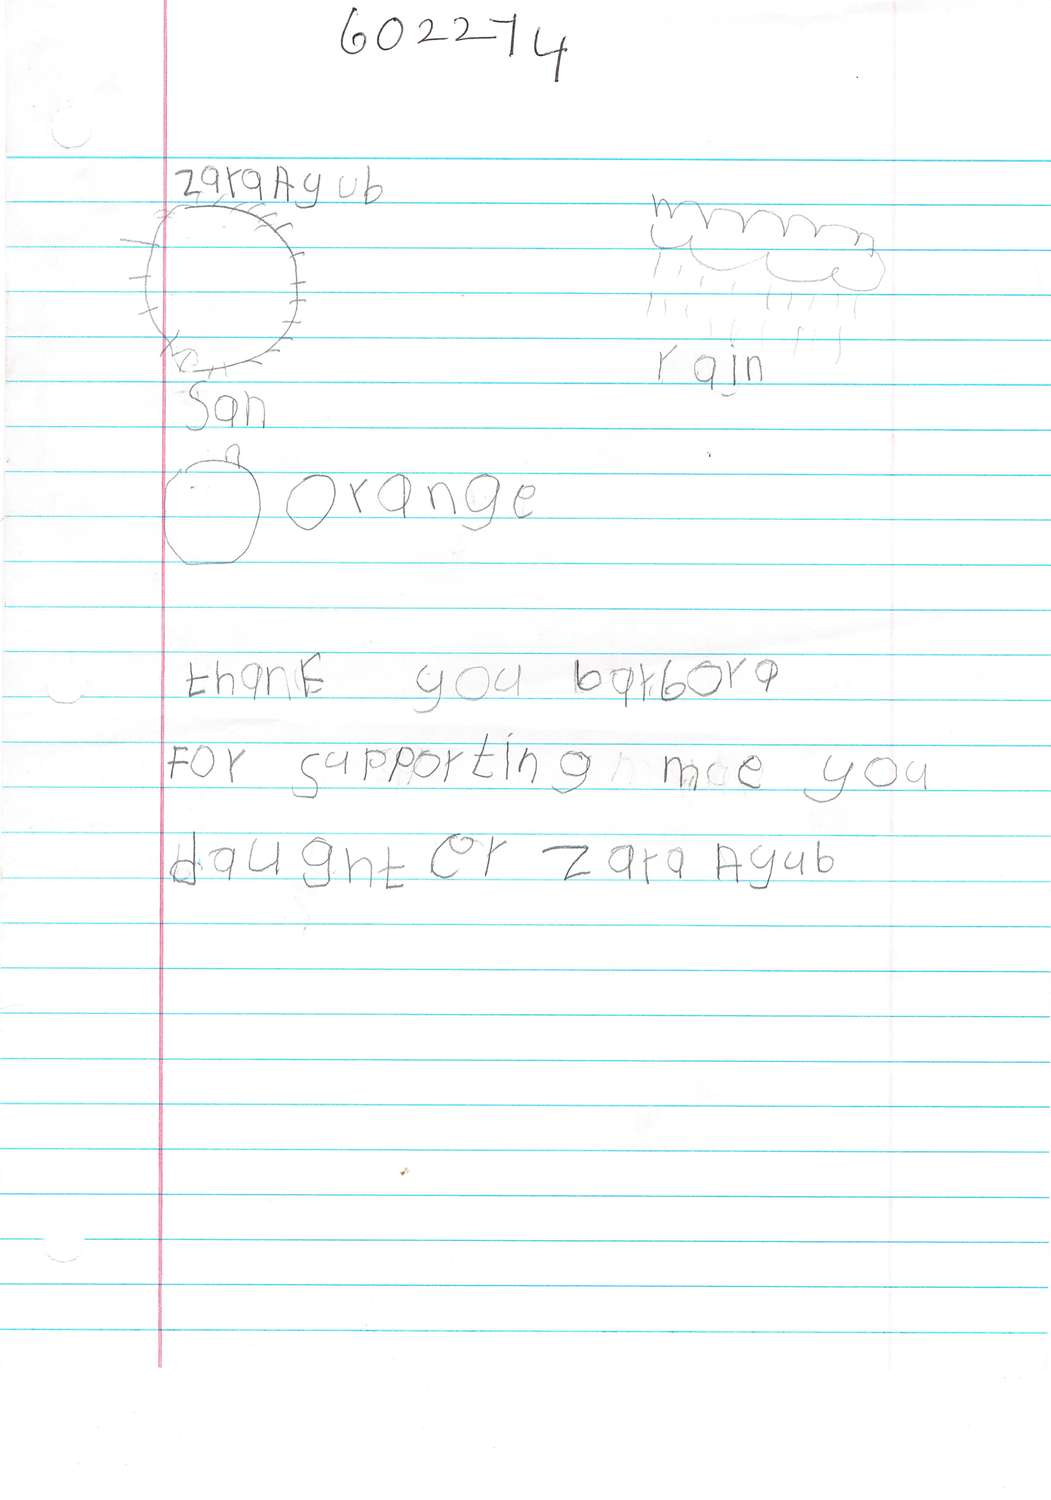 602274
zaraAyub
rain
San
Orange
thank you barbora
For supporting me you
daughter Zara Ayub